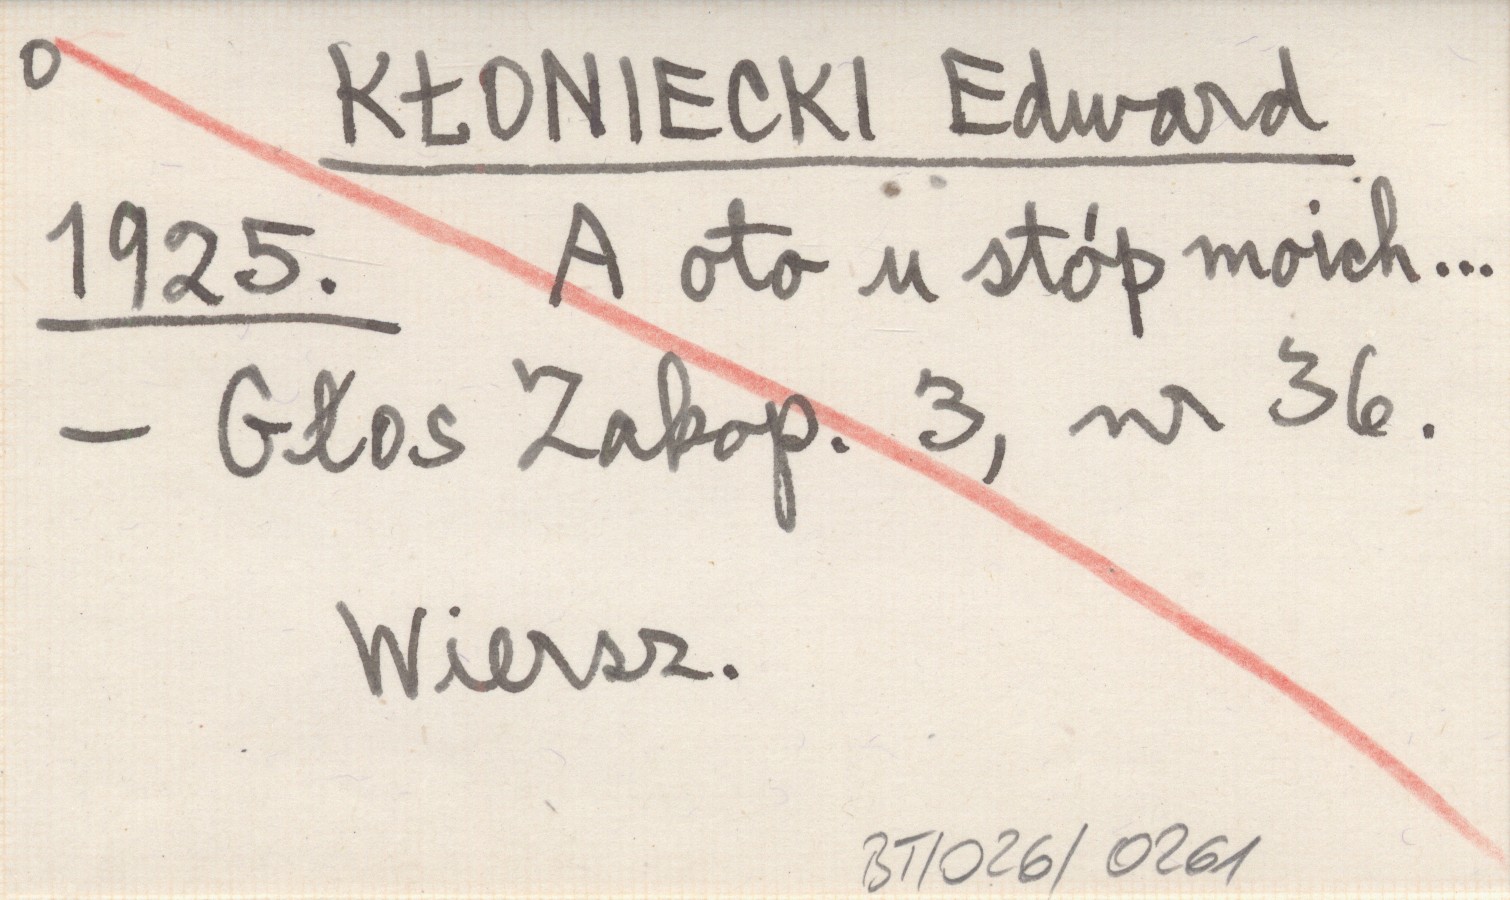 o KŁONIECKI Edward
1925. A oto u stóp moich...
- Głos Zakop. 3, nr 36.
Wiersz.
BT/026/ 0261